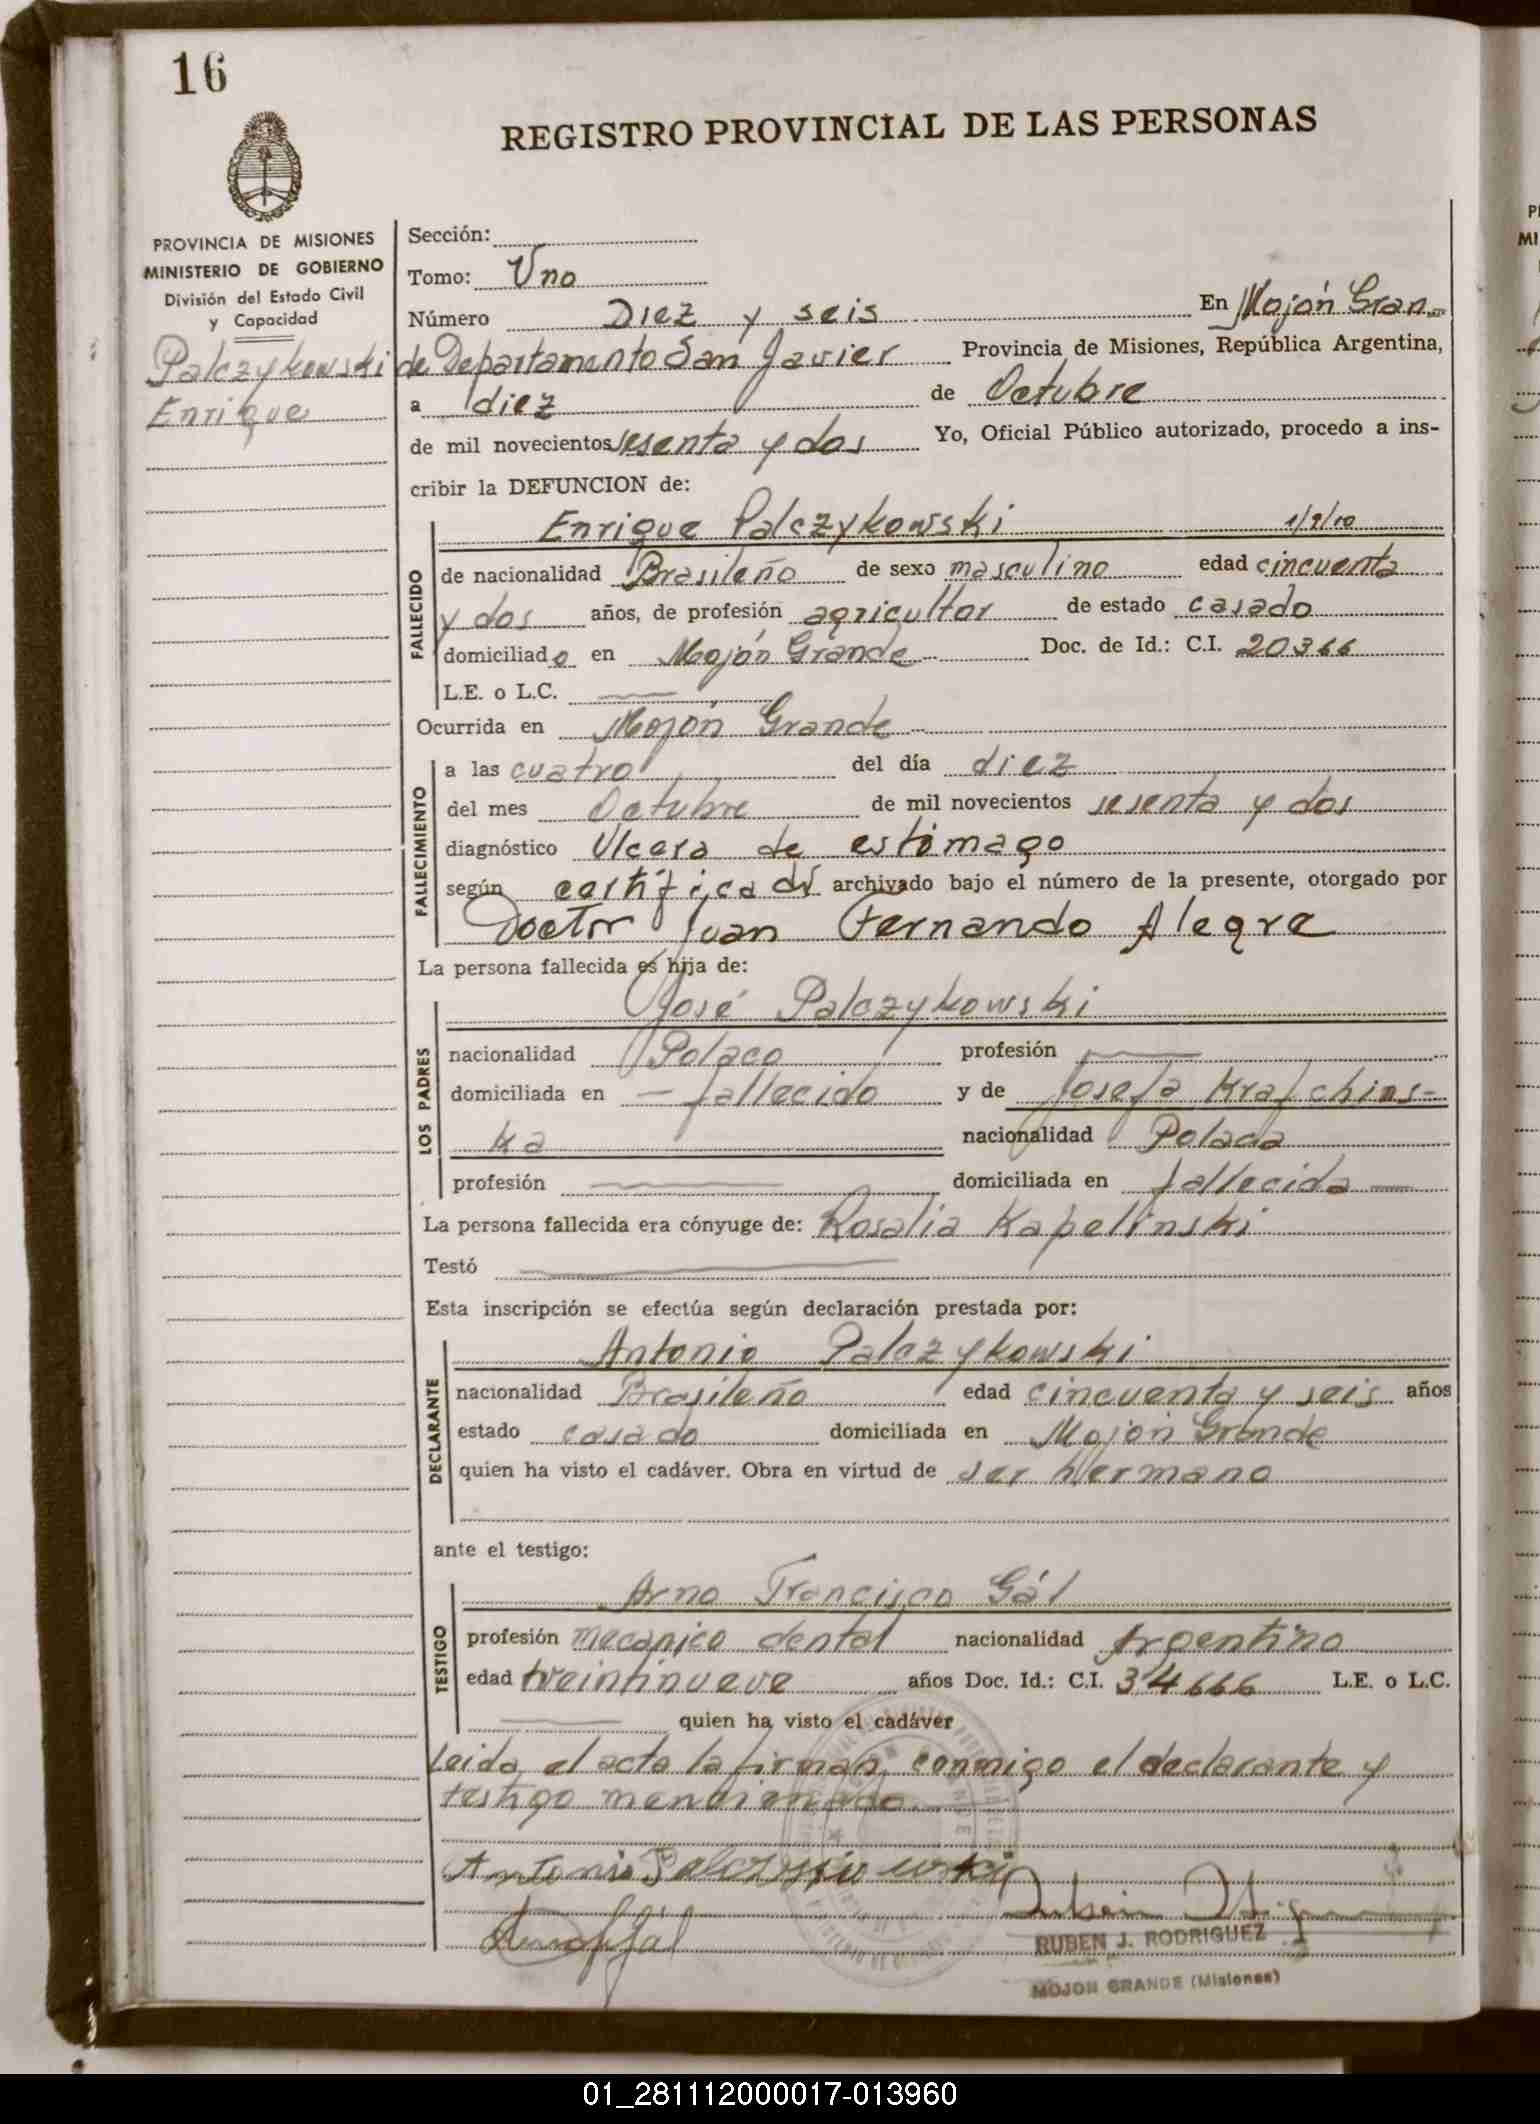 16
REGISTRO PROVINCIAL DE LAS PERSONAS
PROVINCIA DE MISIONES
MINISTERIO DE GOBIERNO
División del Estado Civil
y Capacidad
Palczykowski
Enrique
Sección:
Tomo: Uno
Número Diez y seis En Mojón Gran-
de Departamento San Javier Provincia de Misiones, República Argentina,
a diez de Octubre
de mil novecientos sesenta y dos Yo, Oficial Público autorizado, procedo a ins-
cribir la DEFUNCION de:
Enrique Palczykowski
FALLECIDO
de nacionalidad Brasileño de sexo masculino edad cincuenta
y dos años, de profesión agricultor de estado casado
domiciliado en Mojón Grande Doc. de Id.: C.I. 20366
L.E. o L.C.
Ocurrida en Mojón Grande
FALLECIMIENTO
a las cuatro del día diez
del mes Octubre de mil novecientos sesenta y dos
diagnóstico Ulcera de estómago
según certificado archivado bajo el número de la presente, otorgado por
Doctor Juan Fernando Alegre
La persona fallecida es hija de:
LOS PADRES
José Palczykowski
nacionalidad Polaco profesión
domiciliada en — fallecido y de Josefa Krafchins-
ka nacionalidad Polaca
profesión domiciliada en fallecida —
La persona fallecida era cónyuge de: Rosalia Kapelinski
Testó
Esta inscripción se efectúa según declaración prestada por:
DECLARANTE
Antonio Palczykowski
nacionalidad Brasileño edad cincuenta y seis años
estado casado domiciliada en Mojón Grande
quien ha visto el cadáver. Obra en virtud de ser hermano
ante el testigo:
TESTIGO
Arno Francisco Gál
profesión mecanico dental nacionalidad Argentino
edad treintinueve años Doc. Id.: C.I. 34666 L.E. o L.C.
quien ha visto el cadáver
Leida el acta la firman conmigo el declarante y
testigo mencionado
Antonio Palczykowski
RUBEN J. RODRIGUEZ
MOJON GRANDE (Misiones)
01_281112000017-013960